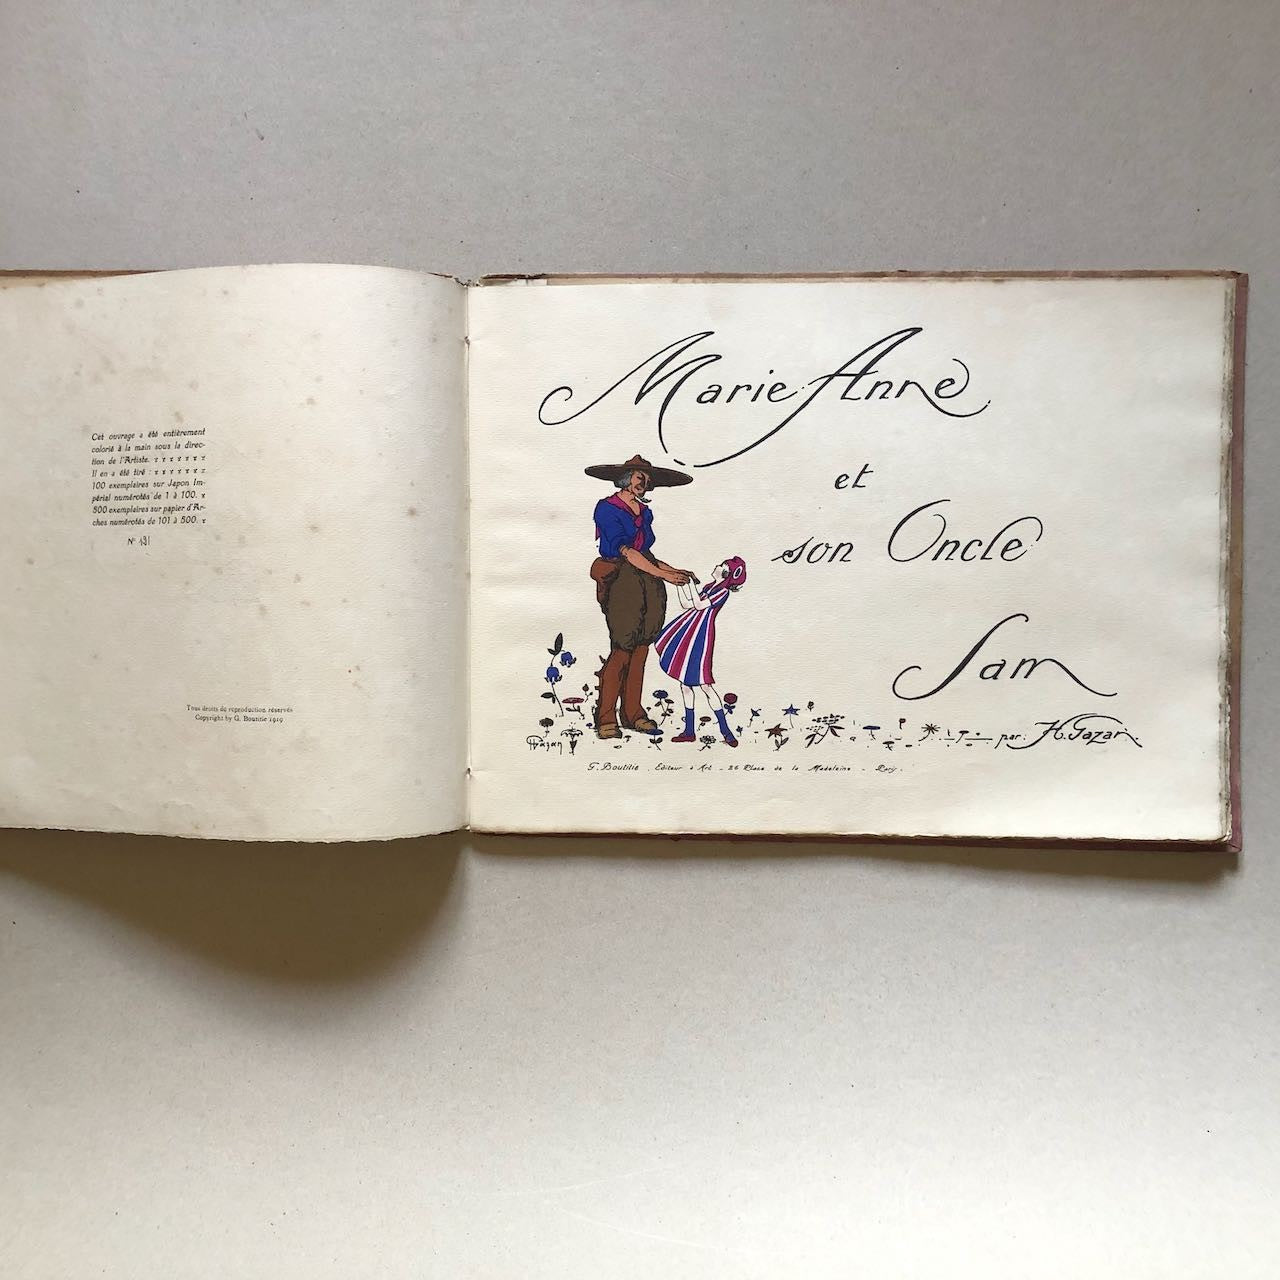 Cet ouvrage a été entièrement
colorié à la main sous la direc-
tion de l'Artiste.
Il en a été tiré :
100 exemplaires sur Japon Im-
périal numérotés de 1 à 100.
500 exemplaires sur papier d'Ar-
ches numérotés de 101 à 500.
N° 131
Tous droits de reproduction réservés
Copyright by G. Boutitie 1919
Marie Anne
et
son Oncle
Sam
par H. Gazan.
HGazan
G. Boutitie . Editeur d'Art - 26 Place de la Madeleine - Paris.